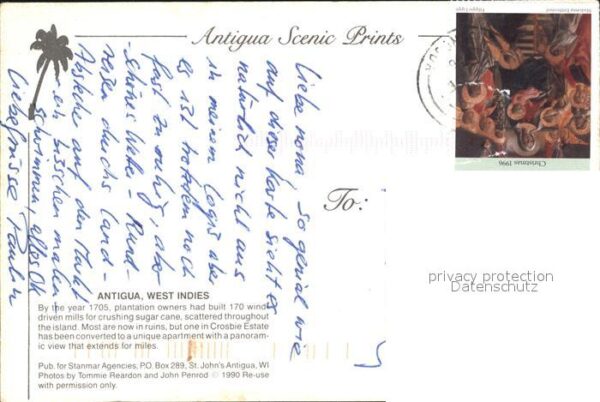 Antigua Scenic Prints
Filippo Lippi
Madonna Enthroned
Christmas 1996
Liebe nona, so genial wie
auf dieser Karte sieht es
natürlich nicht aus
in meinem Logis aber
es ist trotzdem noch
fast zu ruhig, aber
schönes Wetter - Rund-
reisen durchs Land -
Abstecher auf den Markt
ein bisschen malen -
Schwimmen, alles OK -
Liebe Grüsse
To:
privacy protection
Datenschutz
ANTIGUA, WEST INDIES
By the year 1705, plantation owners had built 170 wind
driven mills for crushing sugar cane, scattered throughout
the island. Most are now in ruins, but one in Crosbie Estate
has been converted to a unique apartment with a panoram-
ic view that extends for miles.
Pub. for Stanmar Agencies, P.O. Box 289, St. John's Antigua, WI
Photos by Tommie Reardon and John Penrod © 1990 Re-use
with permission only.